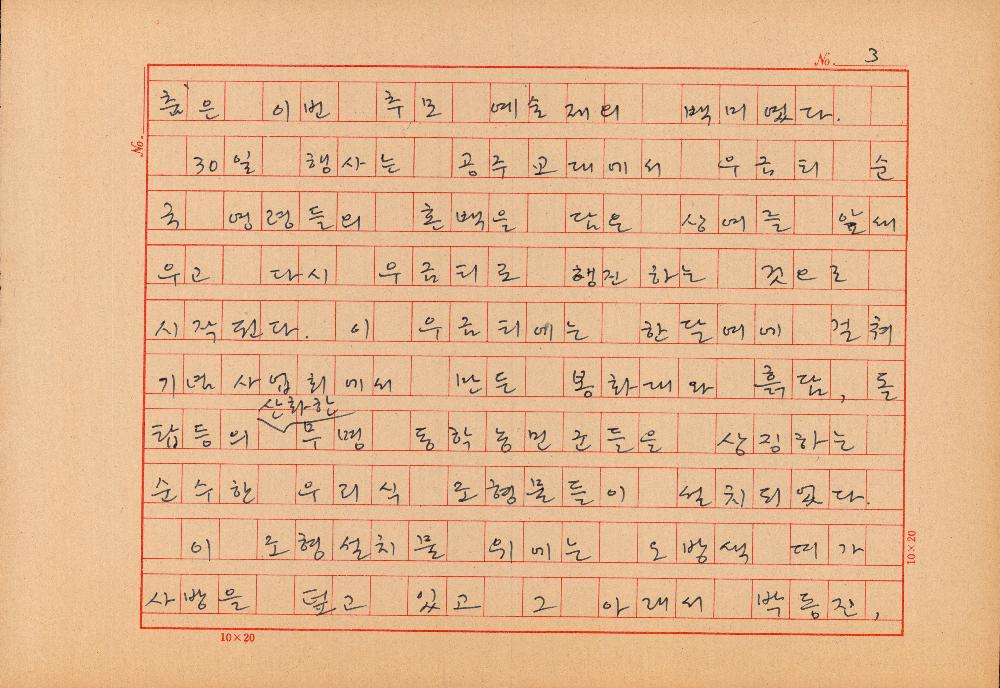 No. 3
No.
춤은 이번 추모 예술제의 백미였다.
30일 행사는 공주 고대에서 우금티 순
국 영령들의 혼백을 담은 상여를 앞세
우고 다시 우금티로 행진하는 것으로
시작된다. 이 우금티에는 한달여에 걸쳐
기념 사업회에서 만든 봉화대와 흙담, 돌
산화한
탑등의 무명 동학농민군들을 상징하는
순수한 우리식 조형물들이 설치되었다.
이 조형설치물 위에는 오방색 띠가
사방을 덮고 있고 그 아래서 박동진,
10×20
10×20